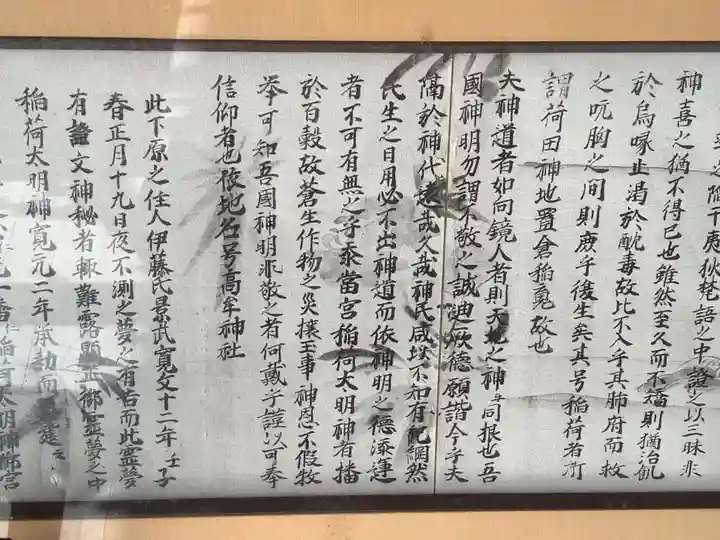 之陷于夷狄梵語之中證之以三昧非
神喜之猶不得已也雖然至久而不癌則猶治飢
於烏喙止渴於酖毒故比不入乎其肺府而救
之吭胸之间則庶乎後生矣其号稲荷者所
謂荷田神地置倉稲竟故也
夫神道者如向鏡人者則天地之神与同根也吾
國神明勿謂不敬之誠曲之厥德願諧今乎夫
隔於神代遠哉久哉神氏咸坎不知有化調然
民生之日用必不出神道而依神明之德添運
者不可有無之乎汞當宮稲荷大明神者播
於百穀故蒼生作物之災攘王事神恩不假牧
挙可知吾國神明汞敬之者何戴乎謹以可奉
信仰者也依地名号高牟神社
此下原之住人伊藤氏景武寛文十二年壬子
春正月十九日夜不測之夢之有占而此霊夢
有證文神秘者輙難露顕正御霊夢之中
稲荷大明神寛元二年承劫而建之
一番稲荷大明神御宮